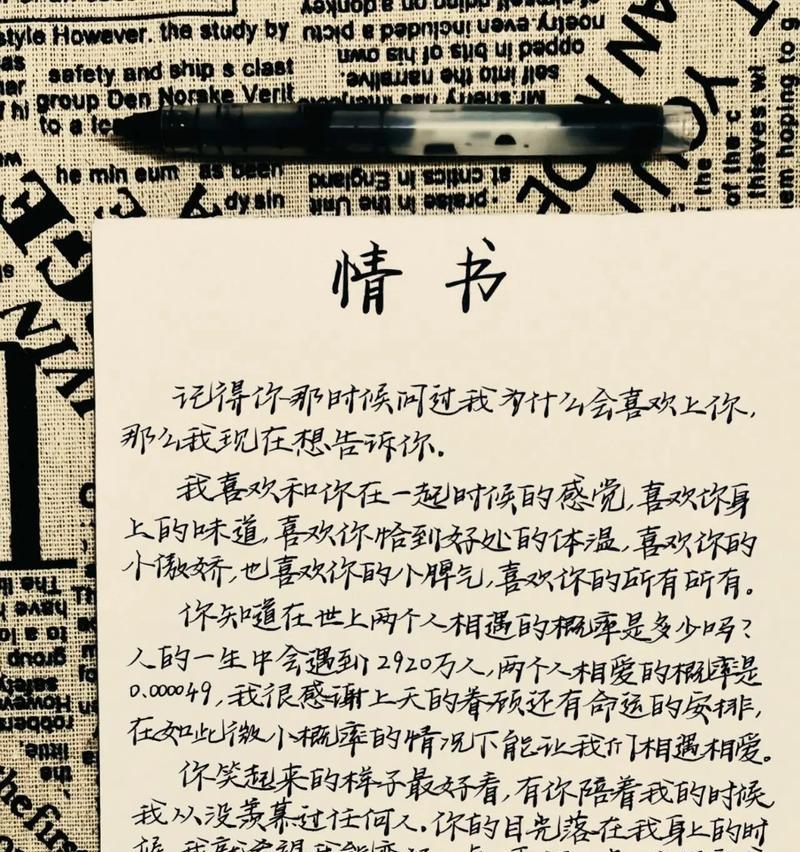 style However. the study by
safety and ship s clast
group Den Norske Verit
he min eum as been
dy sin
noetry. even included a pictu
opped in bits of his own
self into the narrative.
at critics in England
praise in the Unit
of the c
thiaves. wi
em hoping to g
情书
记得你那时候问过我为什么会喜欢上你，
那么我现在想告诉你。
我喜欢和你在一起时候的感觉，喜欢你身
上的味道，喜欢你恰到好处的体温，喜欢你的
小傲娇，也喜欢你的小脾气，喜欢你的所有所有。
你知道在世上两个人相遇的概率是多少吗？
人的一生中会遇到2920万人，两个人相爱的概率是
0.000049，我很感谢上天的眷顾还有命运的安排，
在如此微小概率的情况下能让我们相遇相爱。
你笑起来的样子最好看，有你陪着我的时候
我从没羡慕过任何人。你的目光落在我身上的时
候，我就希望我能变